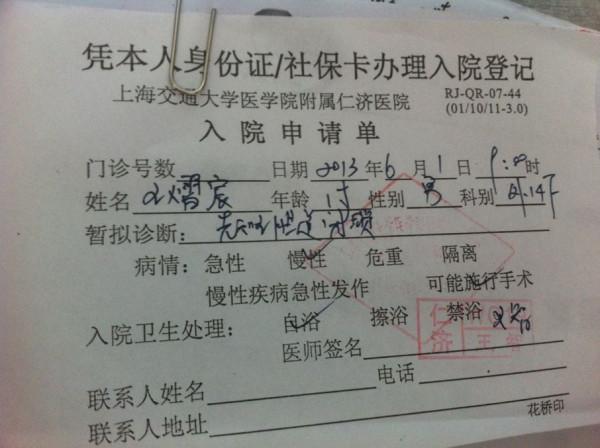 凭本人身份证/社保卡办理入院登记
上海交通大学医学院附属仁济医院 RJ-QR-07-44
(01/10/11-3.0)
入院申请单
门诊号数 日期 2013 年 6 月 1 日 9:00 时
姓名 年龄 1岁 性别 男 科别
暂拟诊断: 先天性胆道闭锁
病情: 急性 慢性 危重 隔离
慢性疾病急性发作 可能施行手术
入院卫生处理: 自浴 擦浴 禁浴
仁济
医师签名
联系人姓名 电话
联系人地址
花桥印